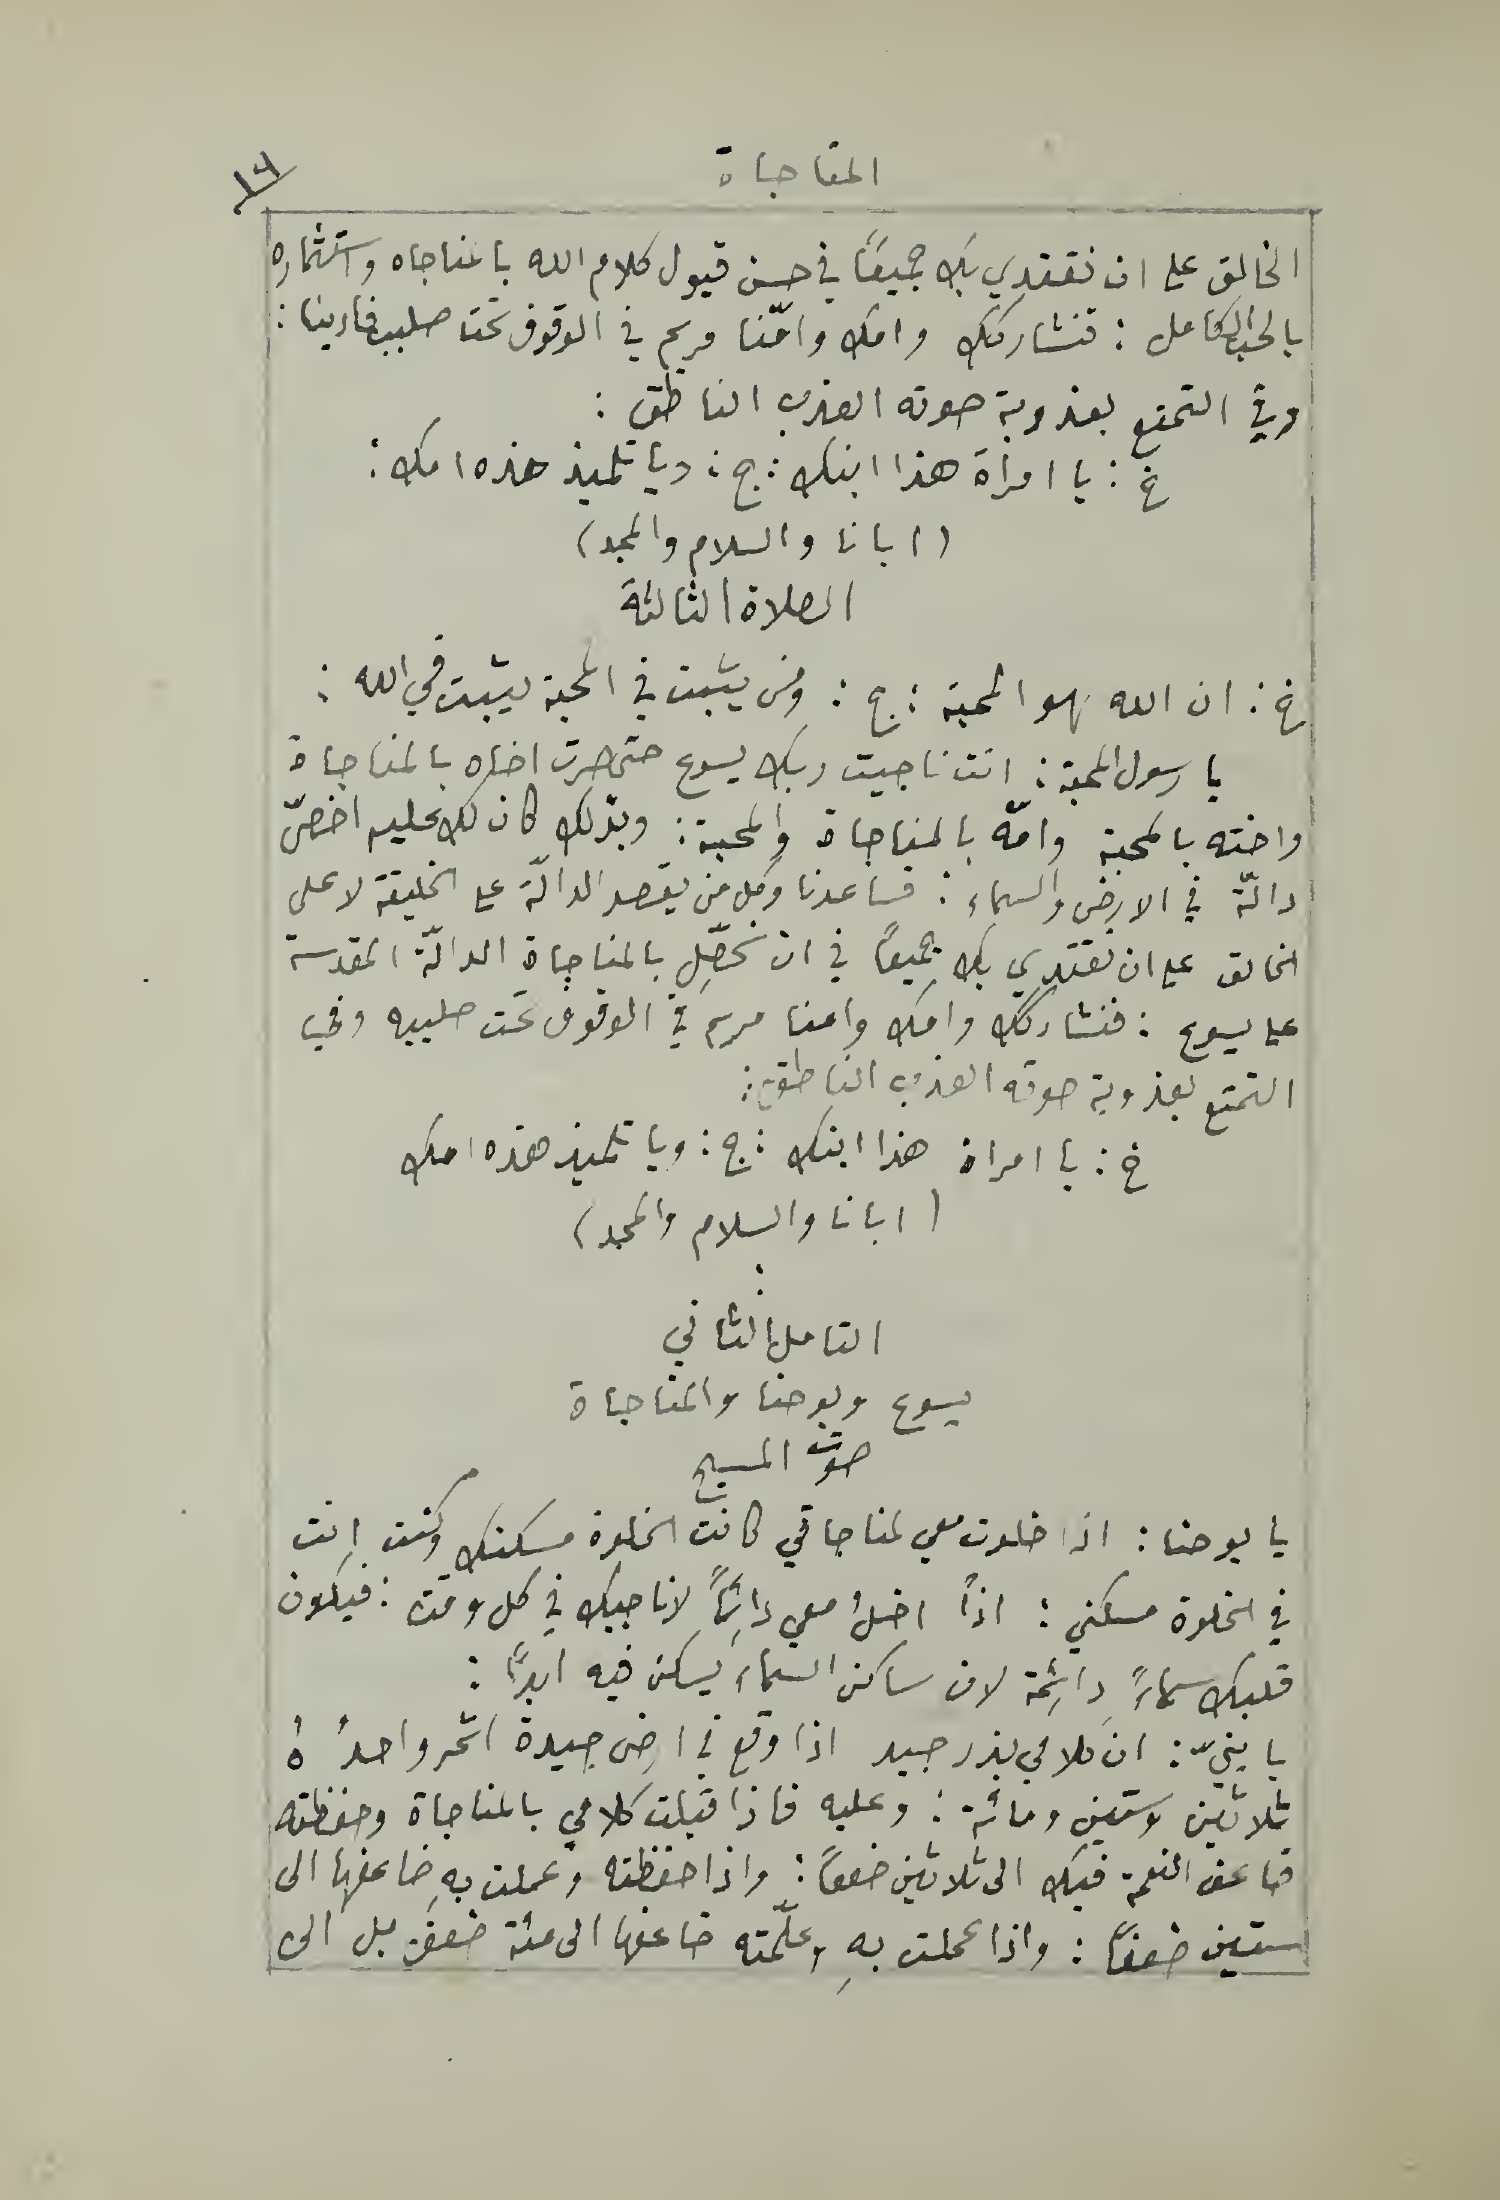 المناجاة
١٦
الخالق على ان نقتدي بك جميعًا في حسن قبول كلام الله بالمناجاه واستثماره
بالحب الكامل : فنشاركك وامك وامّنا مريم في الوقوف تحت صليب فادينا :
وفي التمتع بعذوبة صوته العذب الناطق :
خ : يا امرأة هذا ابنك : ج : ويا تلميذ هذه امك :
( ابانا والسلام والمجد )
الصلاة الثالثة
خ : ان الله هو المحبة : ج : ومن يثبت في المحبة يثبت في الله :
يا رسول المحبة : انت ناجيت ربك يسوع حتى صرت اخاه بالمناجاة
واخته بالمحبة وامّه بالمناجاة والمحبة : وبذلك كان لك عليه اخصّ
دالّة في الارض والسماء : فساعدنا وكل من يقصد الدالّة على الخليقة لا على
الخالق على ان نقتدي بك جميعًا في ان نحصّل بالمناجاة الدالّة المقدسة
على يسوع : فنشاركك وامك وامنا مريم في الوقوف تحت صليبه وفي
التمتع بعذوبة صوته العذب الناطق :
خ : يا امراة هذا ابنك : ج : ويا تلميذ هذه امك
( ابانا والسلام والمجد )
التامل الثاني
يسوع ويوحنا والمناجاة
صوت المسيح
يا يوحنا : اذا خلوت معي لمناجاتي كانت الخلوة مسكنك وكنت انت
في الخلوة مسكني : اذًا اخلُ معي دائمًا لاناجيك في كل وقت : فيكون
قلبك سماءً دائمة لان ساكن السماء يسكن فيه ابدًا :
يا بنيّ : ان كلامي بذر جيد اذا وقع في ارض جيدة اثمر واحدُهُ
ثلاثين وستين ومائة : وعليه فاذا قبلت كلامي بالمناجاة وحفظته
ضاعف النعمة فيك الى ثلاثين ضعفًا : واذا حفظته وعملت بهِ ضاعفها الى
ستين ضعفًا : واذا عملت بهِ وعلّمته ضاعفها الى مئة ضعف بل الى